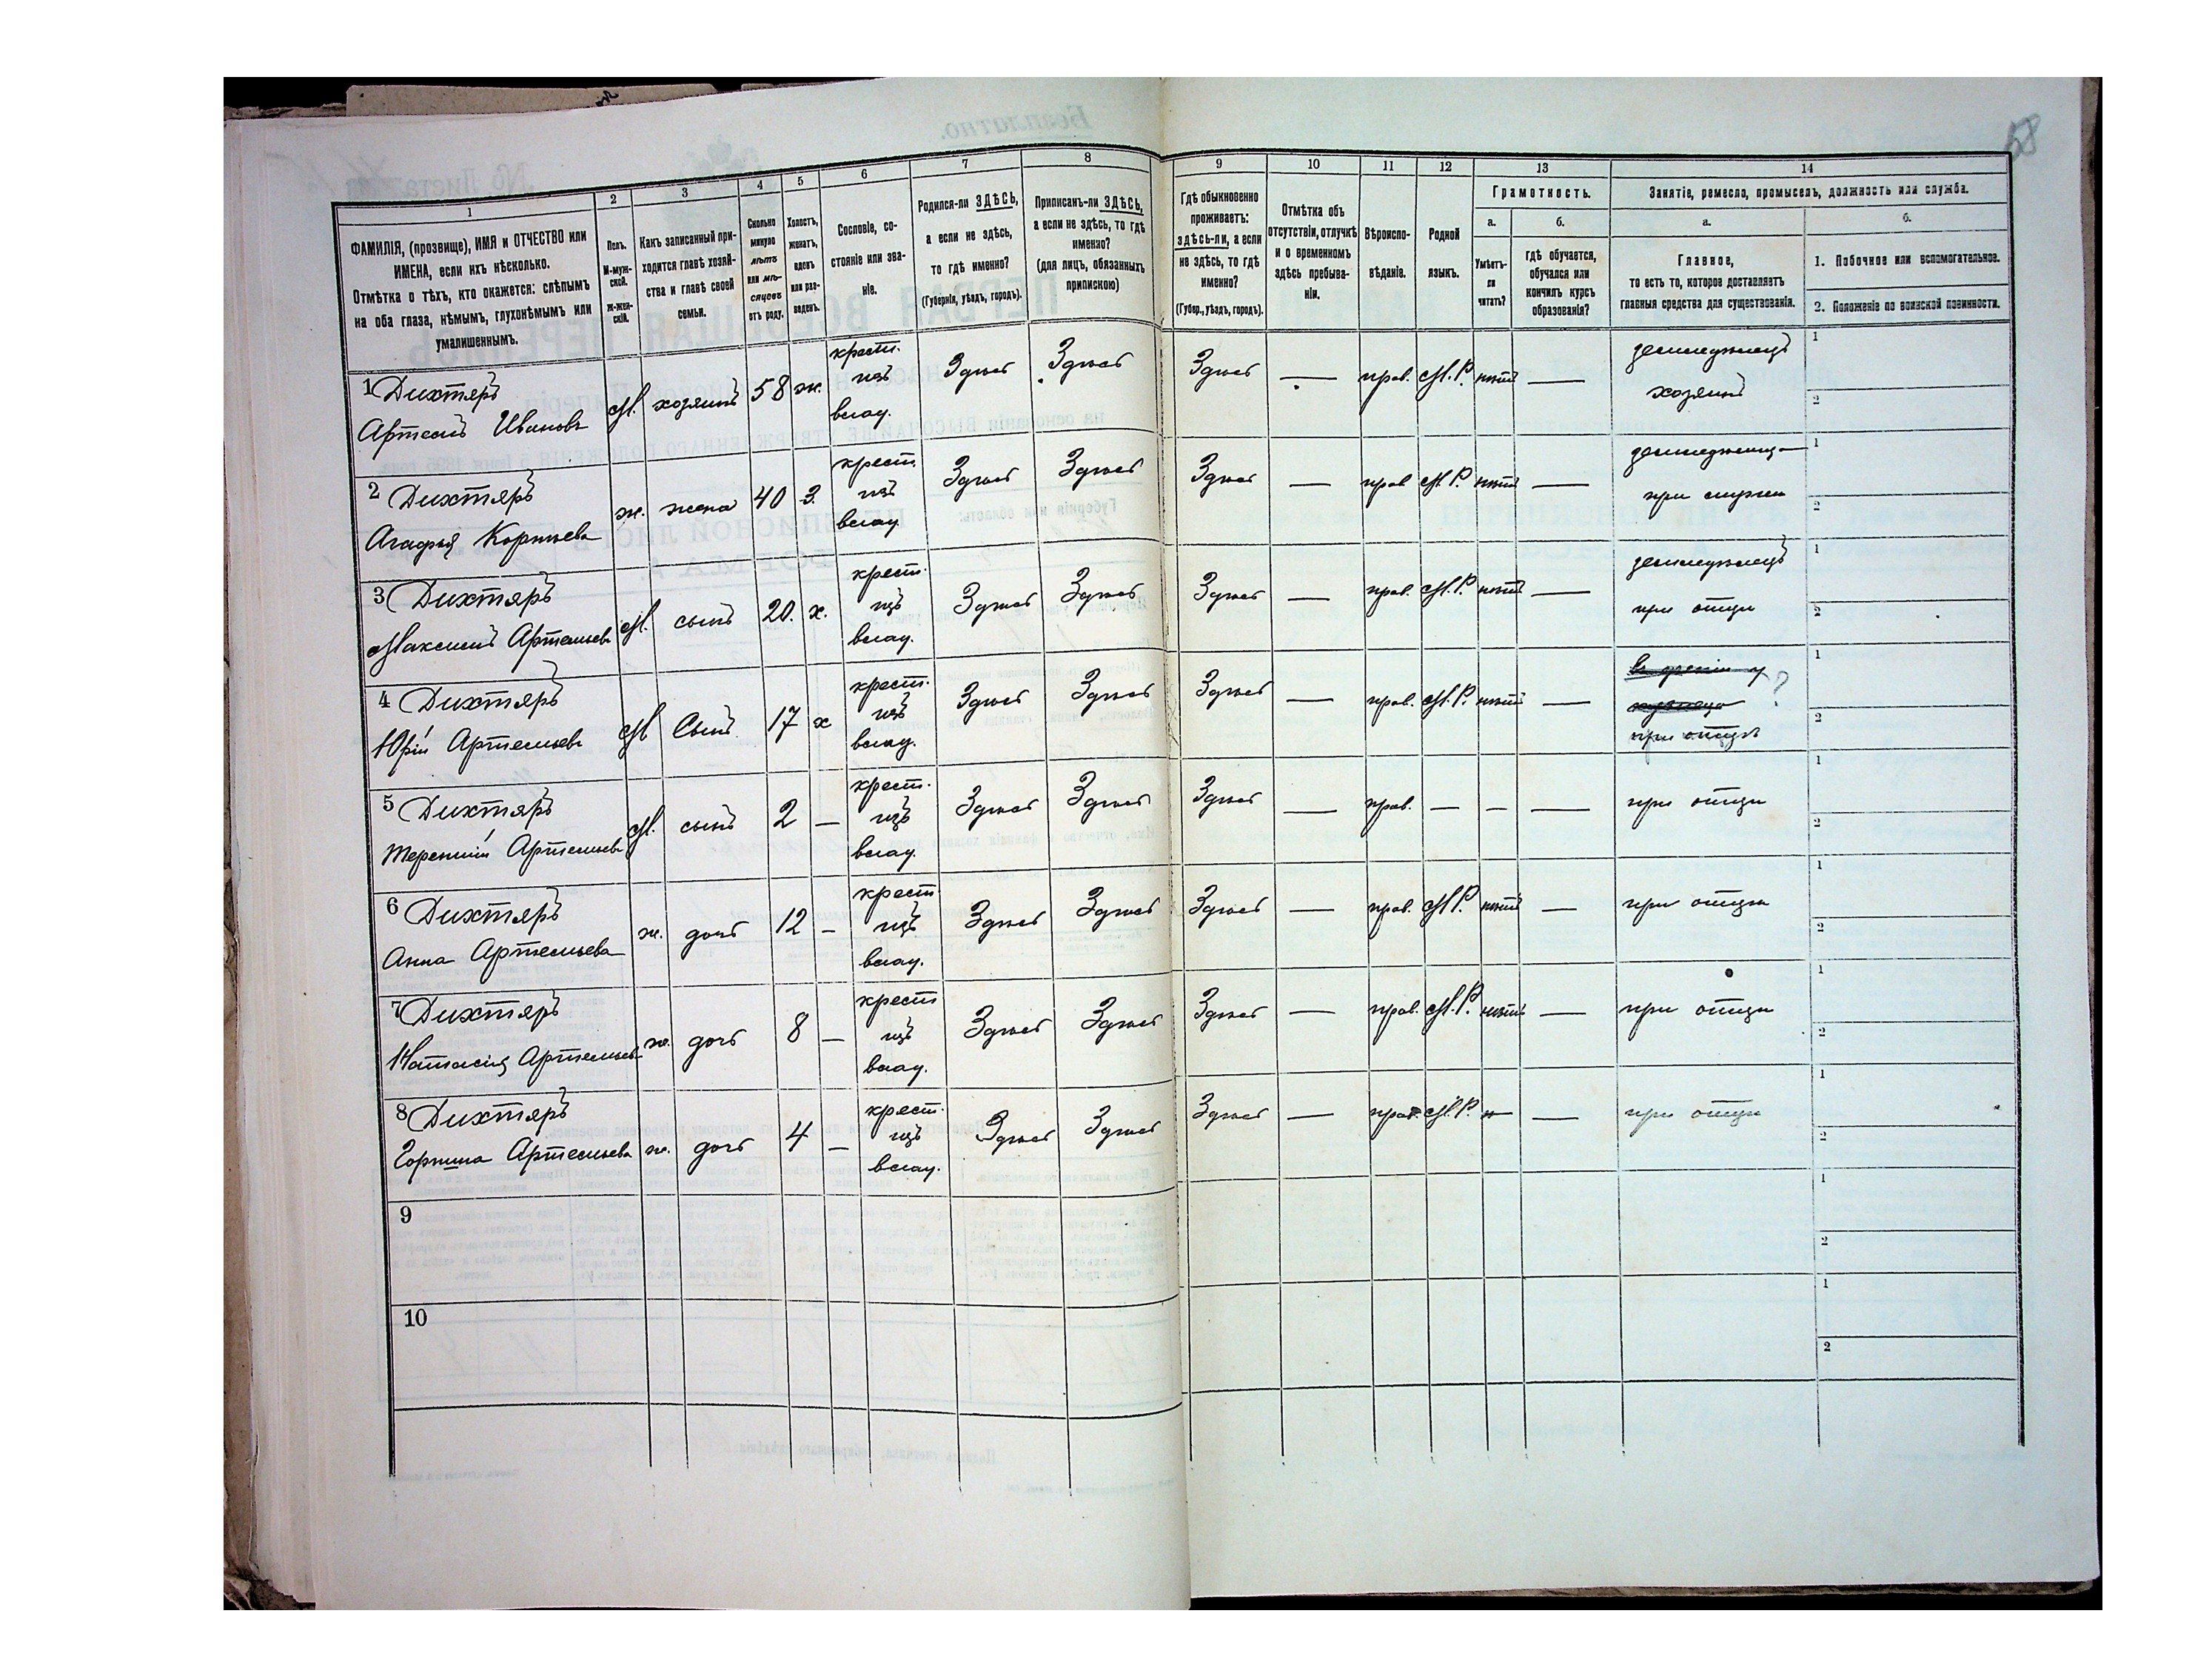 58
1 2 3 4 5 6 7 8 9 10 11 12 13 14
ФАМИЛІЯ, (прозвище), ИМЯ и ОТЧЕСТВО или
ИМЕНА, если ихъ нѣсколько.
Отмѣтка о тѣхъ, кто окажется: слѣпымъ
на оба глаза, нѣмымъ, глухонѣмымъ или
умалишеннымъ.
Полъ.
М-муж-
ской.
Ж-жен-
скій.
Какъ записанный при-
ходится главѣ хозяй-
ства и главѣ своей
семьи.
Сколько
минуло
лѣтъ
или мѣ-
сяцевъ
отъ роду.
Холостъ,
женатъ,
вдовъ
или раз-
веденъ.
Сословіе, со-
стояніе или зва-
ніе.
Родился-ли ЗДѢСЬ,
а если не здѣсь,
то гдѣ именно?
(Губернія, уѣздъ, городъ).
Приписанъ-ли ЗДѢСЬ,
а если не здѣсь, то гдѣ
именно?
(для лицъ, обязанныхъ
припискою)
Гдѣ обыкновенно
проживаетъ:
здѣсь-ли, а если
не здѣсь, то гдѣ
именно?
(Губер., уѣздъ, городъ).
Отмѣтка объ
отсутствіи, отлучкѣ
и о временномъ
здѣсь пребыва-
ніи.
Вѣроиспо-
вѣданіе.
Родной
языкъ.
Грамотность.
а.
Умѣетъ-
ли
читать?
б.
Гдѣ обучается,
обучался или
кончилъ курсъ
образованія?
Занятіе, ремесло, промыселъ, должность или служба.
а.
Главное,
то есть то, которое доставляетъ
главныя средства для существованія.
б.
1. Побочное или вспомогательное.
2. Положеніе по воинской повинности.
1 Дихтяръ
Артемъ Ивановъ
М. хозяинъ 58 ж.
крест.
изъ
влад.
Здѣсь Здѣсь Здѣсь — прав. М.Р. нѣтъ —
земледѣлецъ
хозяинъ
1
2
2 Дихтяръ
Агафья Корнѣева
ж. жена 40 З.
крест.
изъ
влад.
Здѣсь Здѣсь Здѣсь — прав М.Р. нѣтъ —
при мужѣ
1
2
3 Дихтяръ
Максимъ Артемьевъ
М. сынъ 20. х.
крест.
изъ
влад.
Здѣсь Здѣсь Здѣсь — прав. М.Р. нѣтъ —
земледѣлецъ
при отцѣ
1
2
4 Дихтяръ
Юрій Артемьевъ
М Сынъ 17 х
крест.
изъ
влад.
Здѣсь Здѣсь Здѣсь — прав. М.Р. нѣтъ —
?
при отцѣ
1
2
5 Дихтяръ
Терентій Артемьевъ
М. сынъ 2 —
крест.
изъ
влад.
Здѣсь Здѣсь Здѣсь — прав. — — —
при отцѣ
1
2
6 Дихтяръ
Анна Артемьева
ж. дочь 12 —
крест
изъ
влад.
Здѣсь Здѣсь Здѣсь — прав. М.Р. нѣтъ —
при отцѣ
1
2
7 Дихтяръ
Натасія Артемьева
ж. дочь 8 —
крест
изъ
влад.
Здѣсь Здѣсь Здѣсь — прав. М.Р. нѣтъ —
при отцѣ
1
2
8 Дихтяръ
Горпина Артемьева
ж. дочь 4 —
крест.
изъ
влад.
Здѣсь Здѣсь Здѣсь — прав. М.Р. н —
при отцѣ
1
2
9
1
2
10
1
2